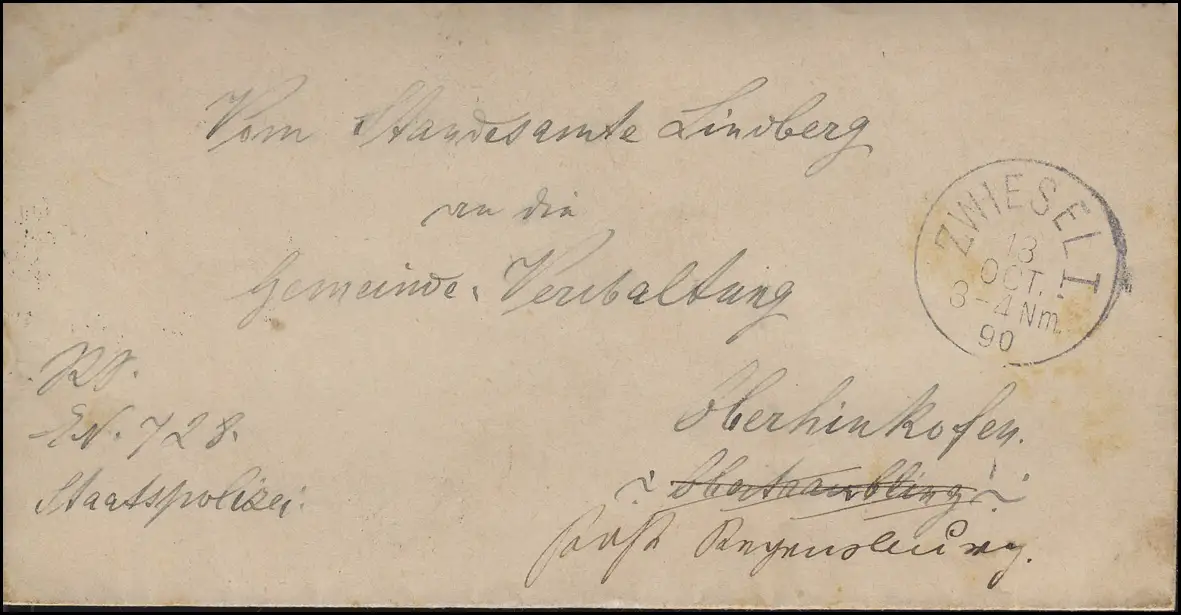 Vom Standesamte Lindberg
an die
Gemeinde-Verwaltung
ZWIESEL I.
13
OCT.
3-4 Nm.
90
EN. 728.
Staatspolizei.
Oberhinkofen.
Obertraubling
Post Regensburg.